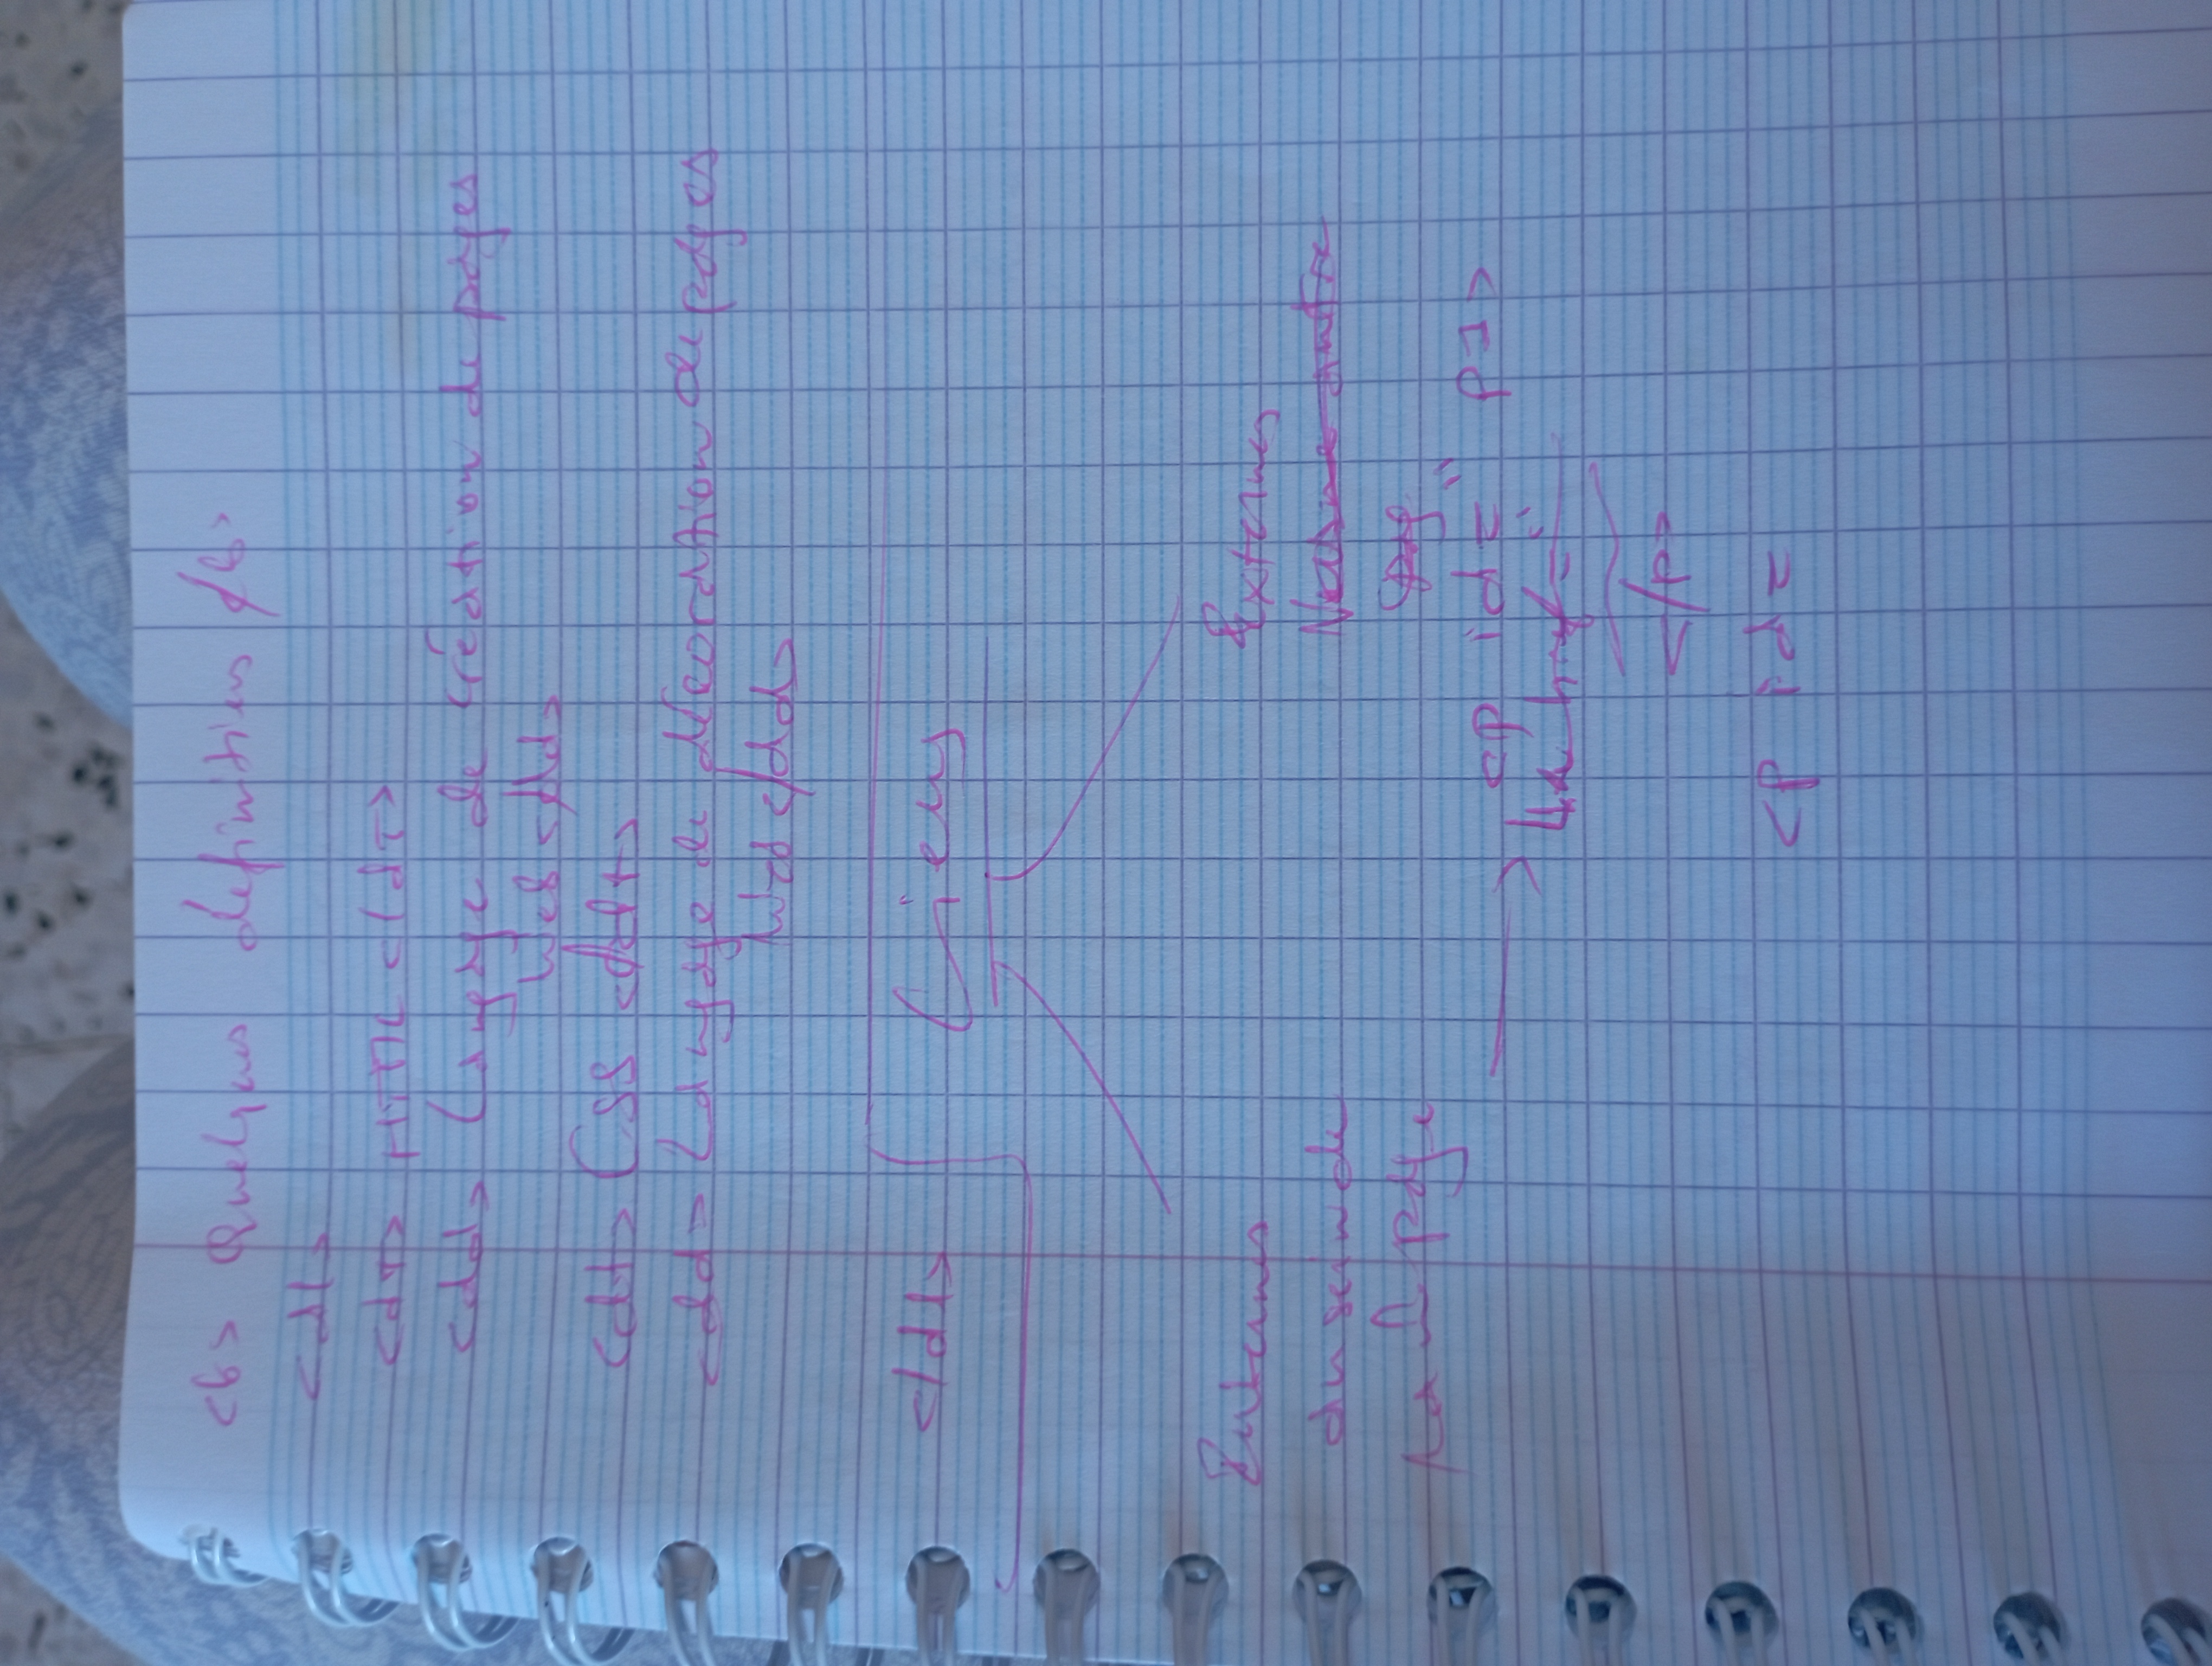 <b> Quelques definitions </b>
<dl>
<dT> HTML </dT>
<dd> Langage de création de pages
Web </dd>
<dt> CSS </dt>
<dd> Langage de décoration de pages
Web </dd>
</dl>
Liens
Internes Externes
au sein de
la page
<p id=" p1>
<a href="
</p>
<p id=